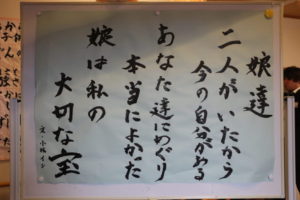 娘達
二人がいたから
今の自分がある
あなた達にめぐり
本当によかった
娘は私の
大切な宝